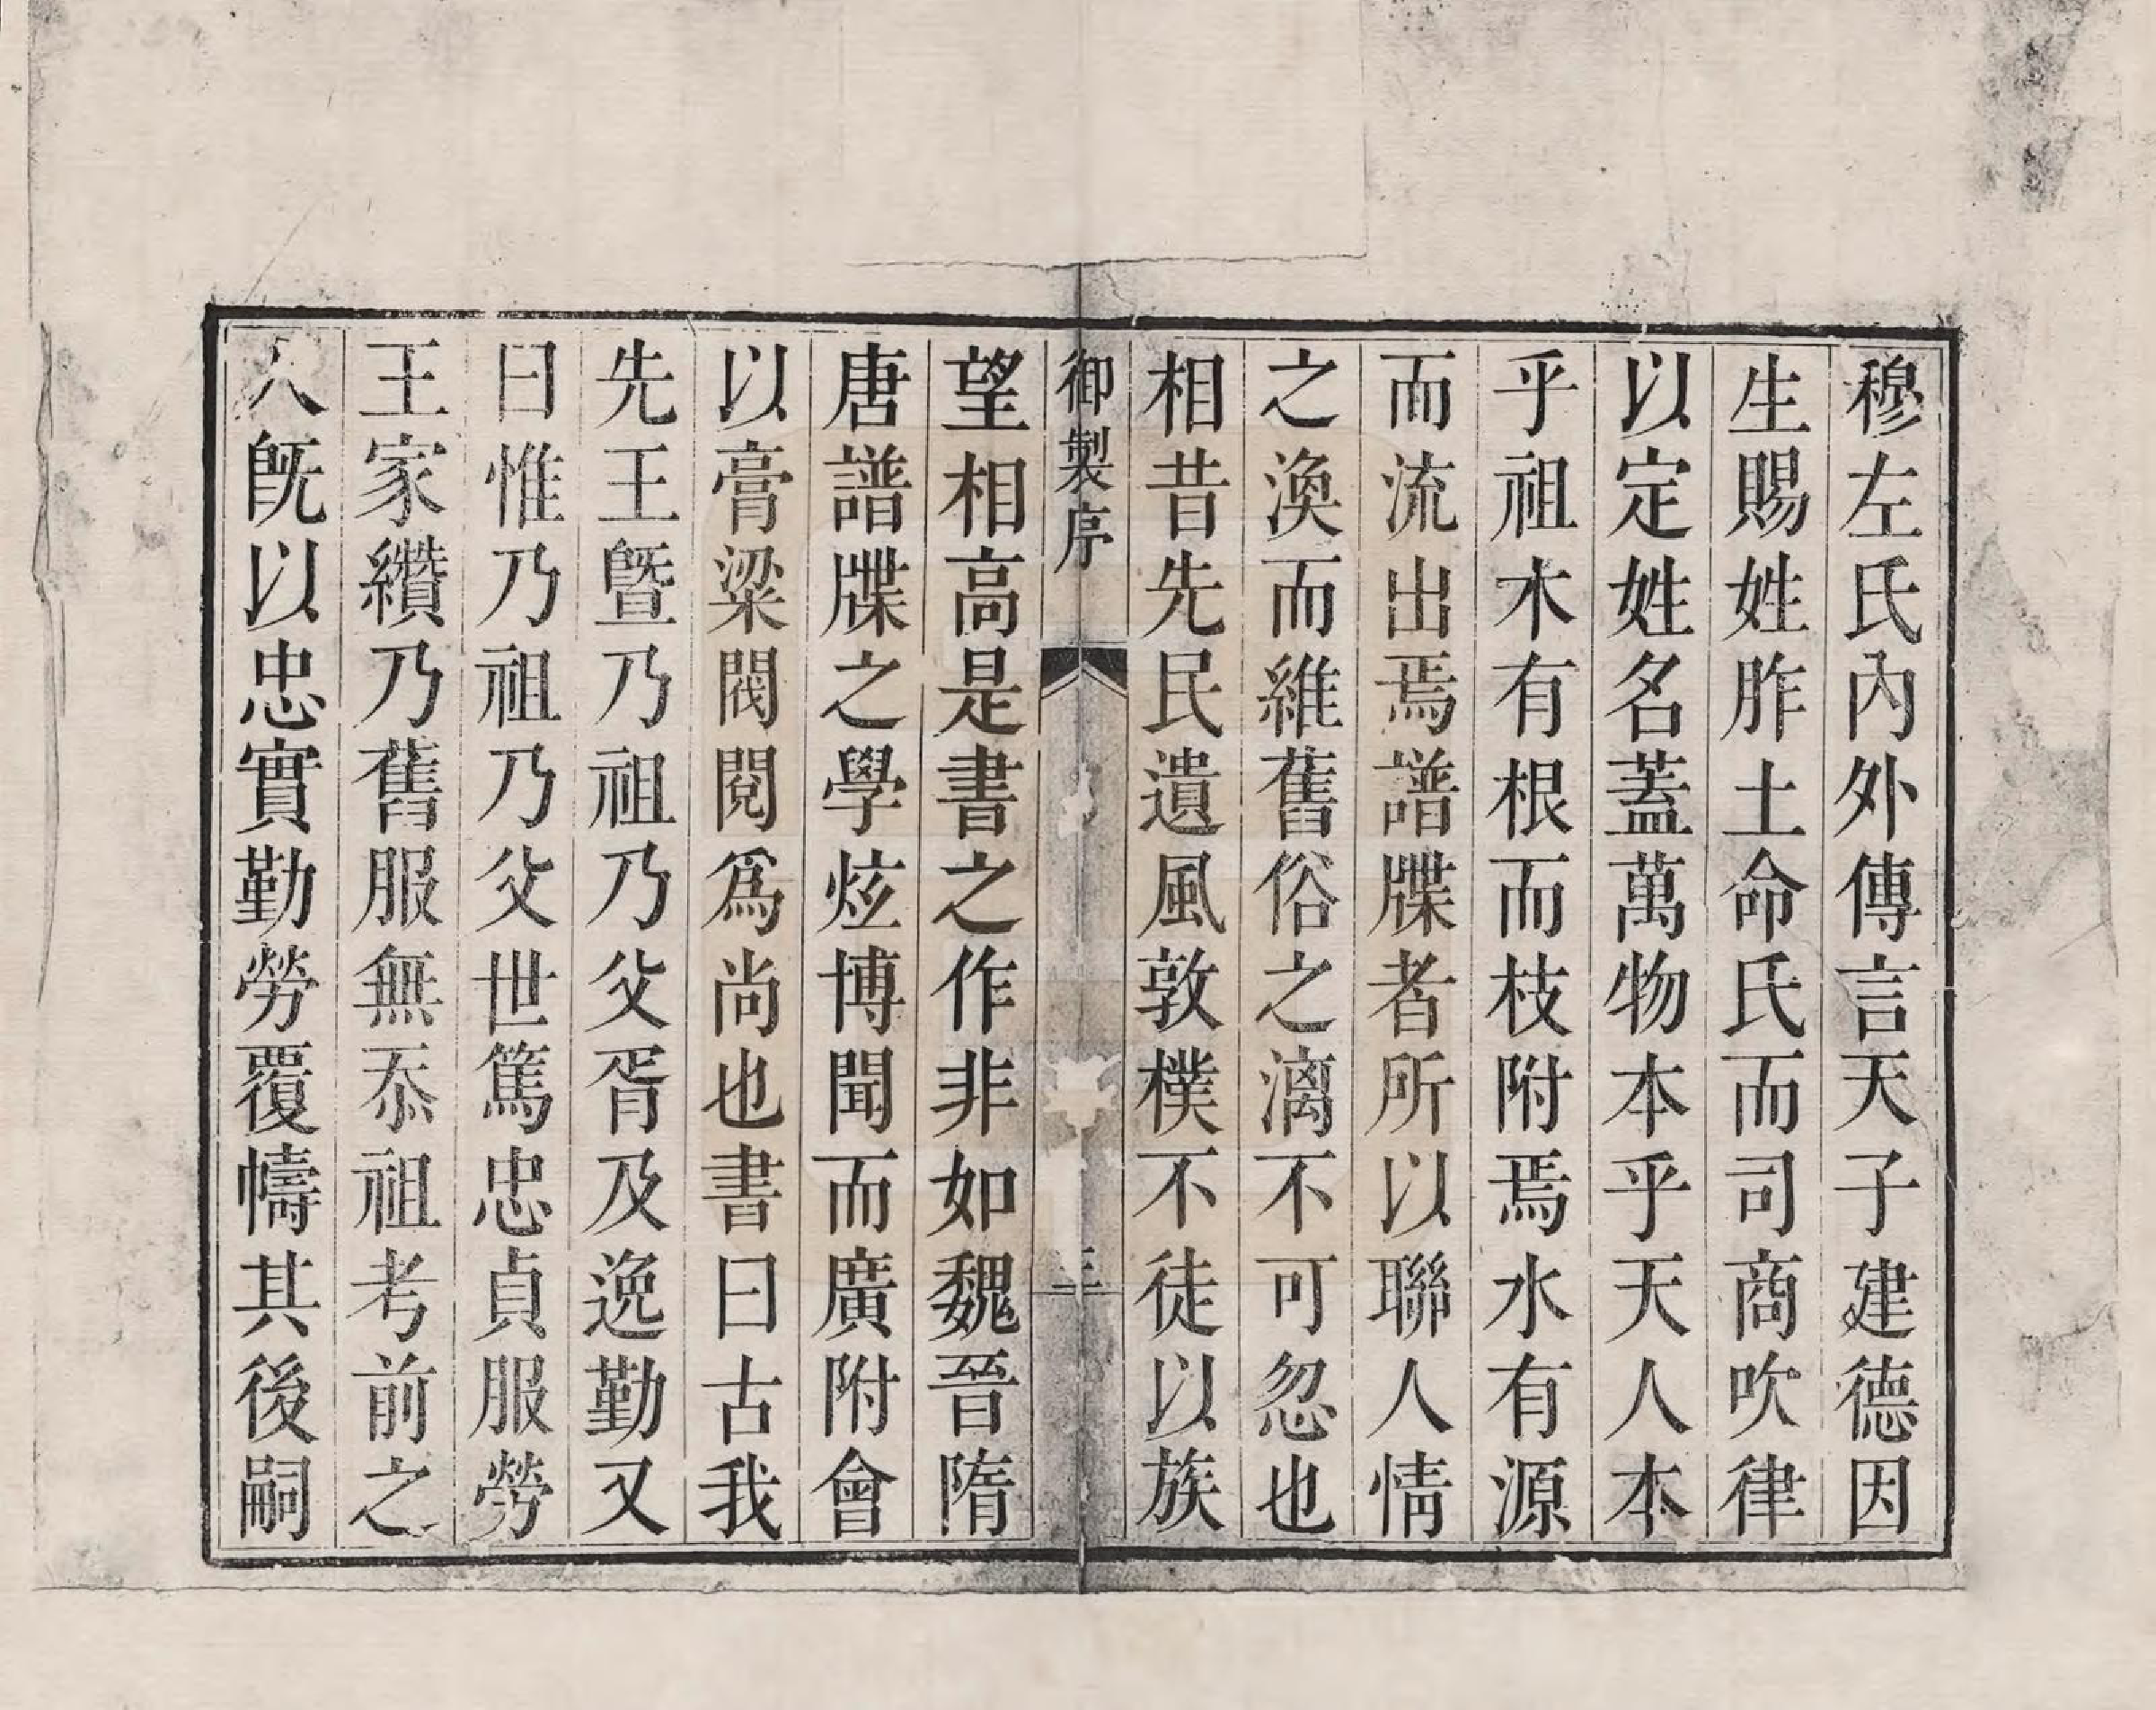 穆左氏內外傳言天子建德因
生賜姓胙土命氏而司商吹律
以定姓名蓋萬物本乎天人本
乎祖木有根而枝附焉水有源
而流出焉譜牒者所以聯人情
之渙而維舊俗之漓不可忽也
相昔先民遺風敦樸不徒以族
御製序
三
望相高是書之作非如魏晉隋
唐譜牒之學炫博聞而廣附會
以膏粱閥閱爲尚也書曰古我
先王暨乃祖乃父胥及逸勤又
曰惟乃祖乃父世篤忠貞服勞
王家纘乃舊服無忝祖考前之
人旣以忠實勤勞覆幬其後嗣